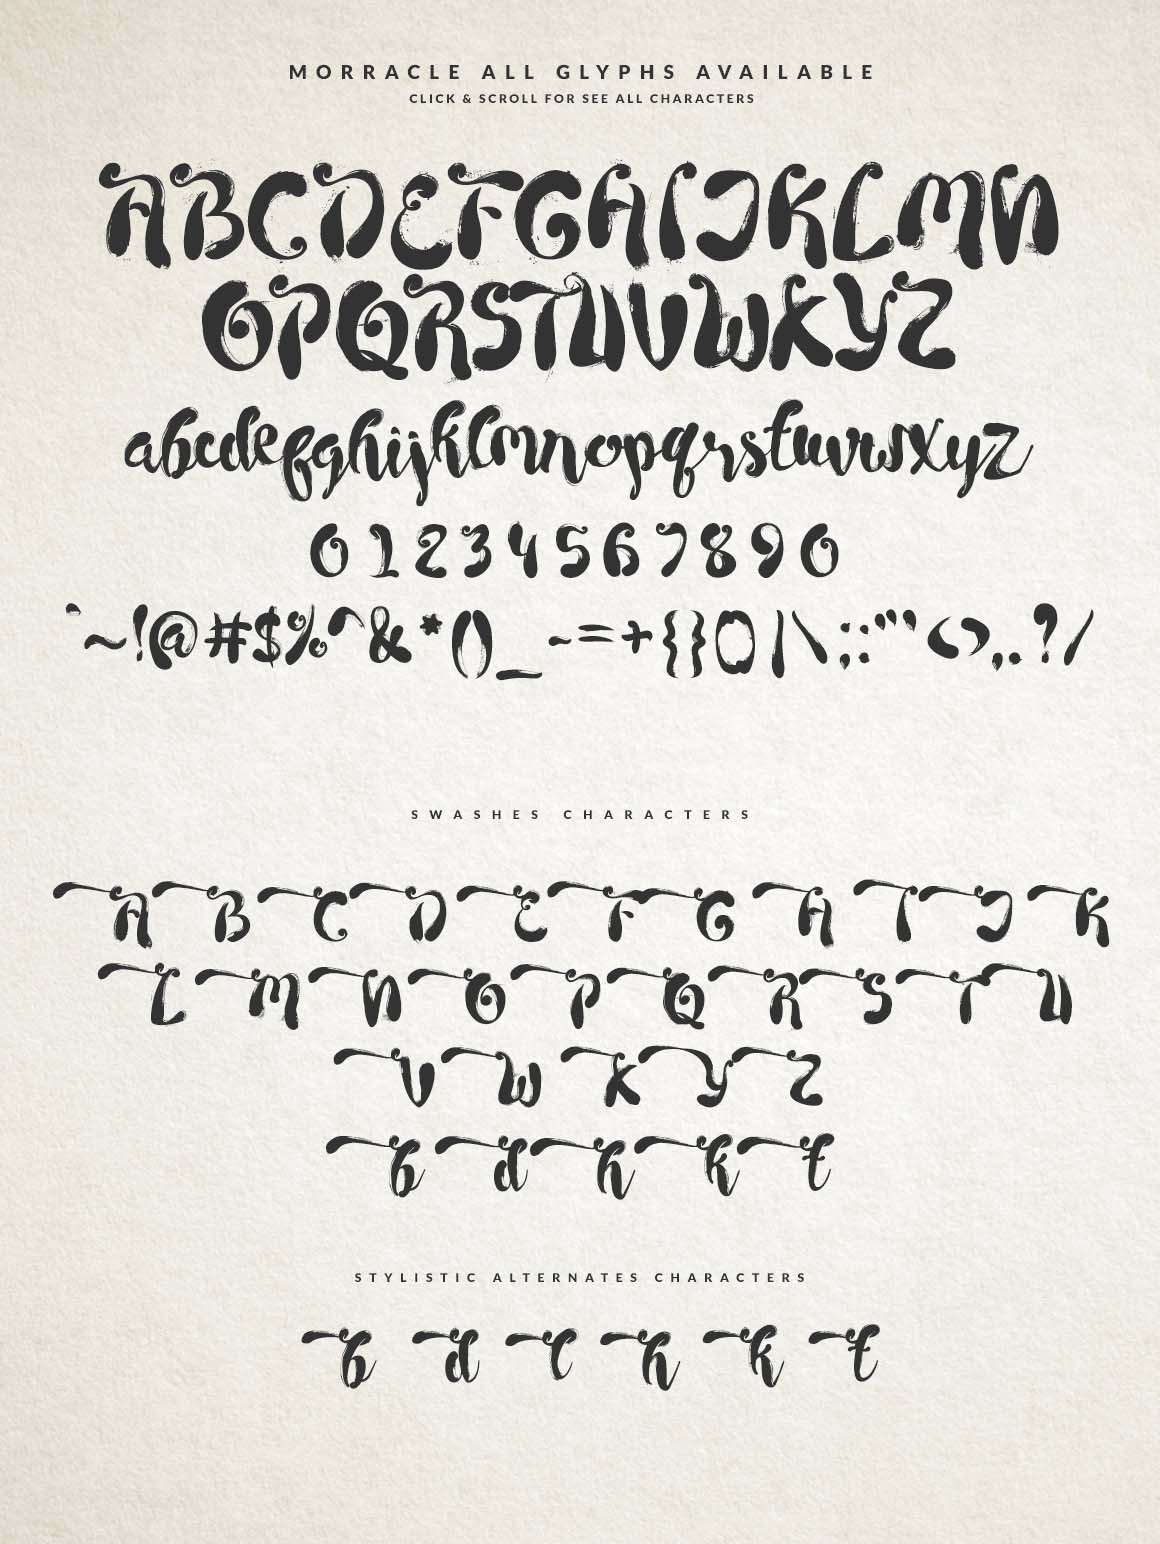 MORRACLE ALL GLYPHS AVAILABLE
CLICK & SCROLL FOR SEE ALL CHARACTERS
ABCDEFGHIJKLMN
OPQRSTUVWXYZ
abcdefghijklmnopqrstuvwxyz
01234567890
`~!@#$%^&*()_-=+{}[]|\;:"'<>,.?/
SWASHES CHARACTERS
ABCDEFGHIJK
LMNOPQRSTU
VWXYZ
bdhkt
STYLISTIC ALTERNATES CHARACTERS
bdlhkt